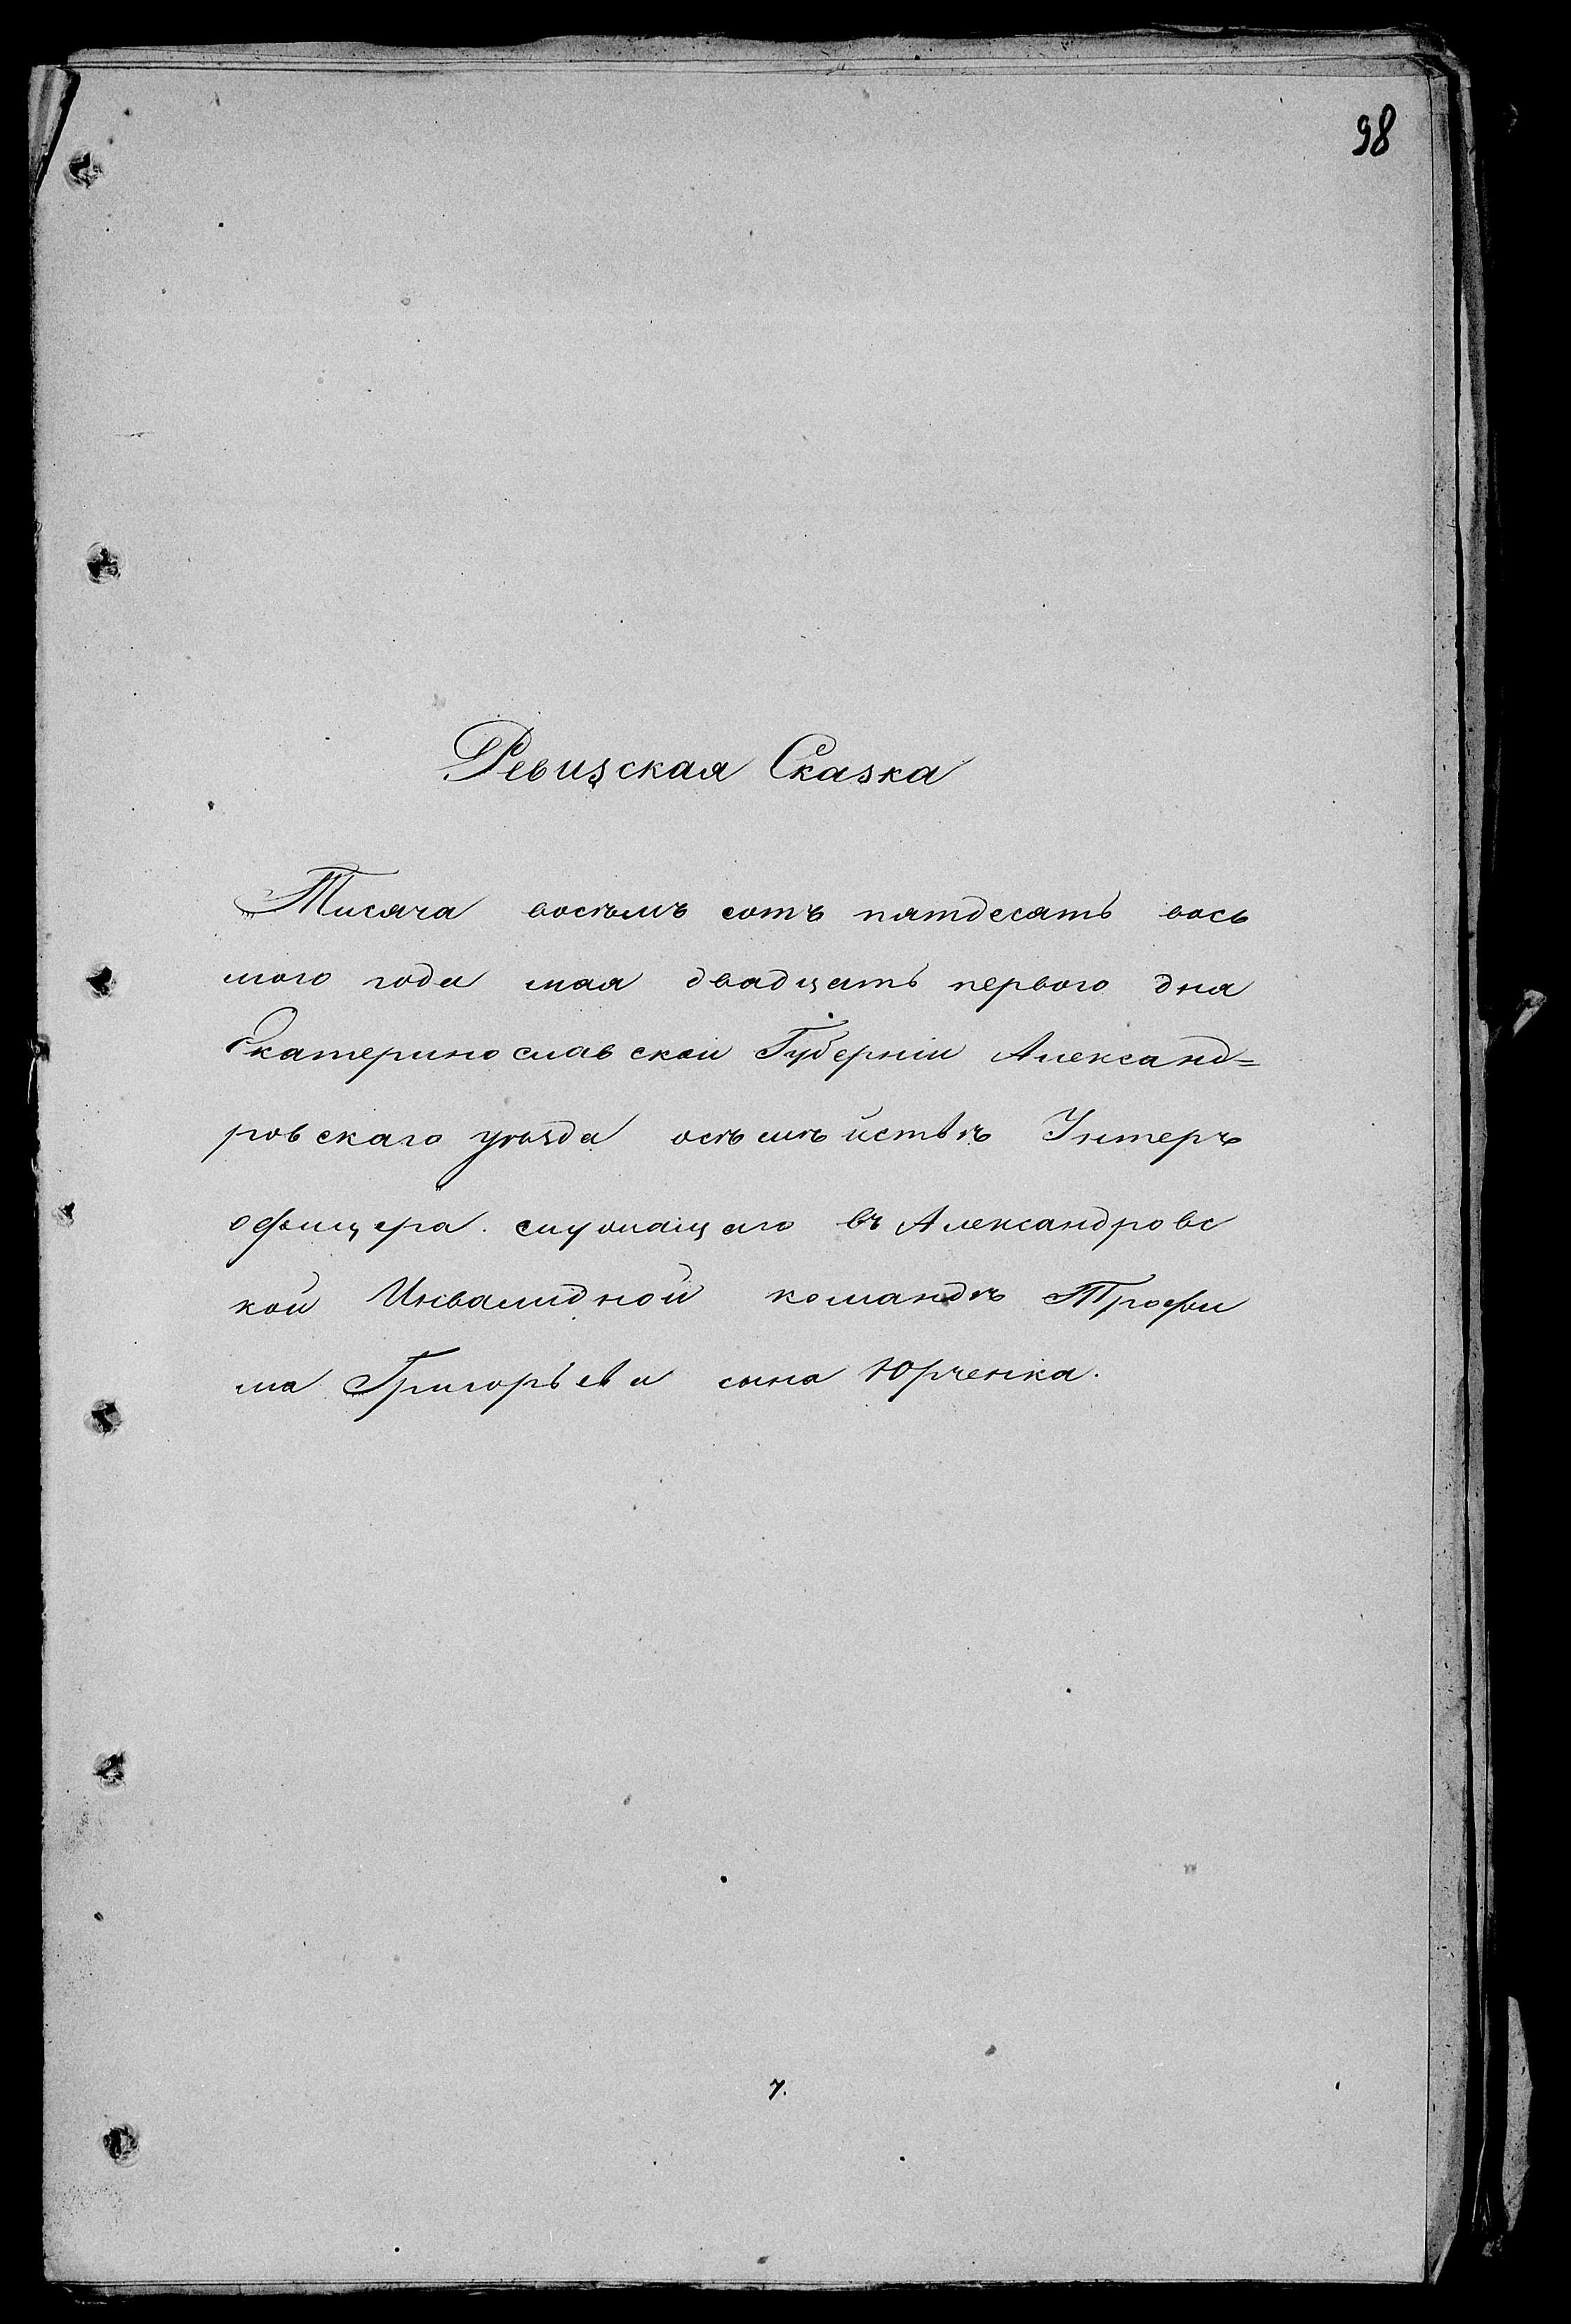 98
Ревизская Сказка
Тисяча восѣмъ сотъ пятдесятъ вось
мого года мая двадцать первого дня
Екатеринославской Губерніи Александ=
ровскаго уѣзда осѣмѣйствѣ Унтеръ
офицера служащаго въ Александровс
кой Инвалидной командѣ Трофи
ма Григорьева сына Юрченка.
7.